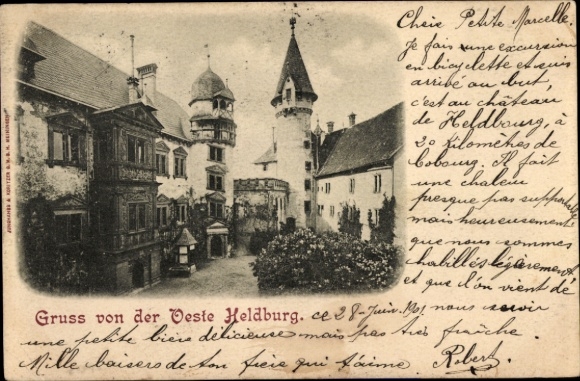 Cheie Petite Marcelle.
Je fais une excursion
en bicyclette et suis
arrivé au but,
c'est au château
de Heldbourg, à
20 kilomèhes de
Cobourg. Il fait
une chaleur
presque pas supportable
mais heureusement
que nous sommes
habillés légèrement
et que l'on vient de
Gruss von der Veste Heldburg. ce 28-Juin. 1901 nous servir
une petite bière délicieuse mais pas très fraîche.
Mille baisers de ton frère qui t'aime. Robert.